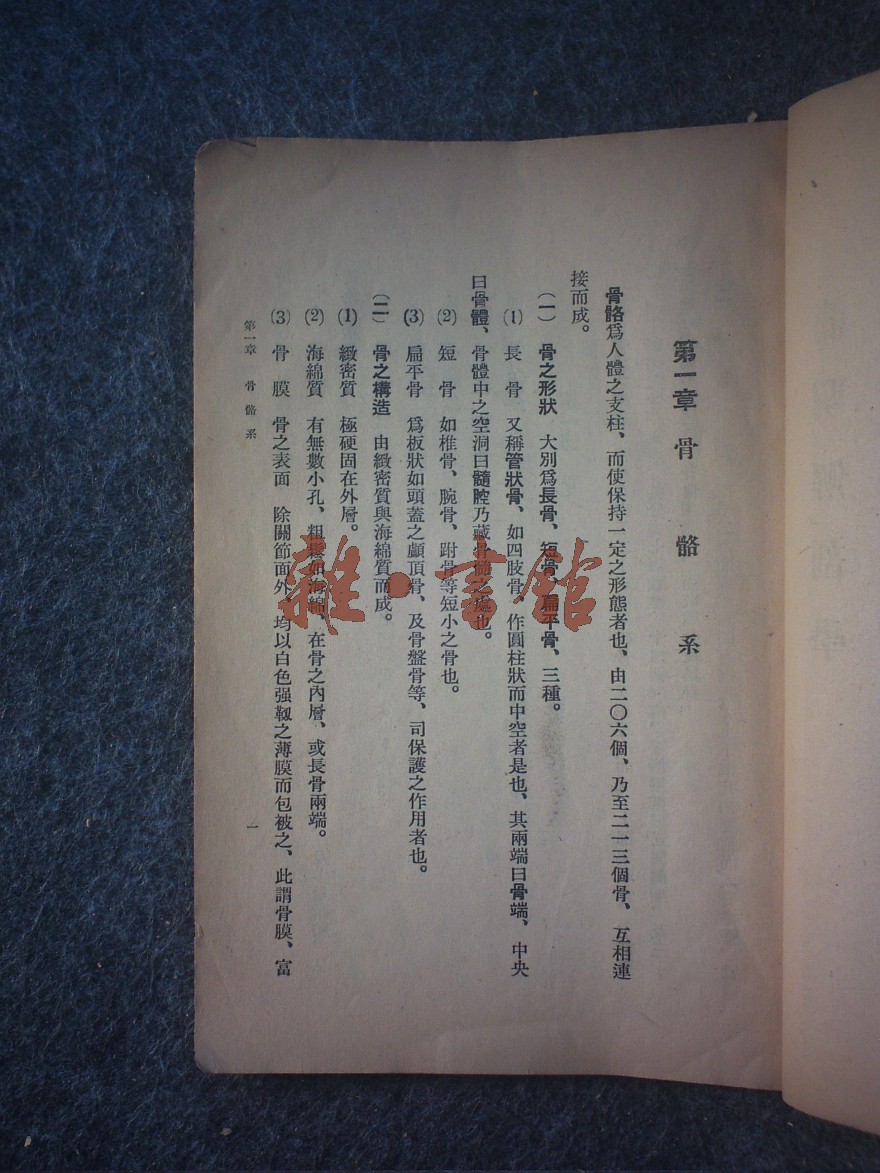 第一章 骨骼系
骨骼爲人體之支柱、而使保持一定之形態者也、由二〇六個、乃至二一三個骨、互相連
接而成。
(一) 骨之形狀 大別爲長骨、短骨、扁平骨、三種。
(1) 長骨 又稱管狀骨、如四肢骨、作圓柱狀而中空者是也、其兩端曰骨端、中央
曰骨體、骨體中之空洞曰髓腔乃藏骨髓之處也。
(2) 短骨 如椎骨、腕骨、跗骨等短小之骨也。
(3) 扁平骨 爲板狀如頭蓋之顱頂骨、及骨盤骨等、司保護之作用者也。
(二) 骨之構造 由緻密質與海綿質而成。
(1) 緻密質 極硬固在外層。
(2) 海綿質 有無數小孔、粗鬆如海綿、在骨之內層、或長骨兩端。
(3) 骨膜 骨之表面 除關節面外、均以白色强靱之薄膜而包被之、此謂骨膜、富
第一章 骨骼系
一
雜·書館